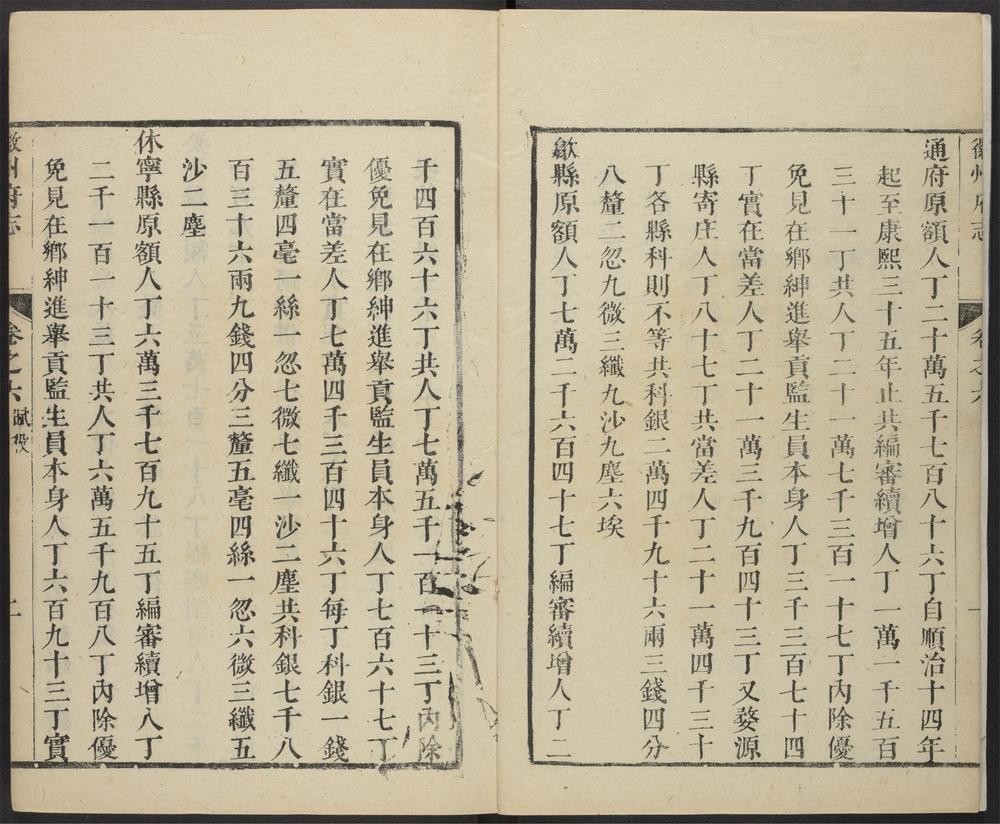 徽州府志
卷之六
一
通府原額人丁二十萬五千七百八十六丁自順治十四年
起至康熙三十五年止共編審續增人丁一萬一千五百
三十一丁共人丁二十一萬七千三百一十七丁內除優
免見在鄉紳進舉貢監生員本身人丁三千三百七十四
丁實在當差人丁二十一萬三千九百四十三丁又婺源
縣寄庄人丁八十七丁共當差人丁二十一萬四千三十
丁各縣科則不等共科銀二萬四千九十六兩三錢四分
八釐二忽九微三纖九沙九塵六埃
歙縣原額人丁七萬二千六百四十七丁編審續增人丁二
千四百六十六丁共人丁七萬五千一百一十三丁內除
優免見在鄉紳進舉貢監生員本身人丁七百六十七丁
實在當差人丁七萬四千三百四十六丁每丁科銀一錢
五釐四毫一絲一忽七微七纖一沙二塵共科銀七千八
百三十六兩九錢四分三釐五毫四絲一忽六微三纖五
沙二塵
休寧縣原額人丁六萬三千七百九十五丁編審續增人丁
二千一百一十三丁共人丁六萬五千九百八丁內除優
免見在鄉紳進舉貢監生員本身人丁六百九十三丁實
徽州府志
卷之六 賦役
二